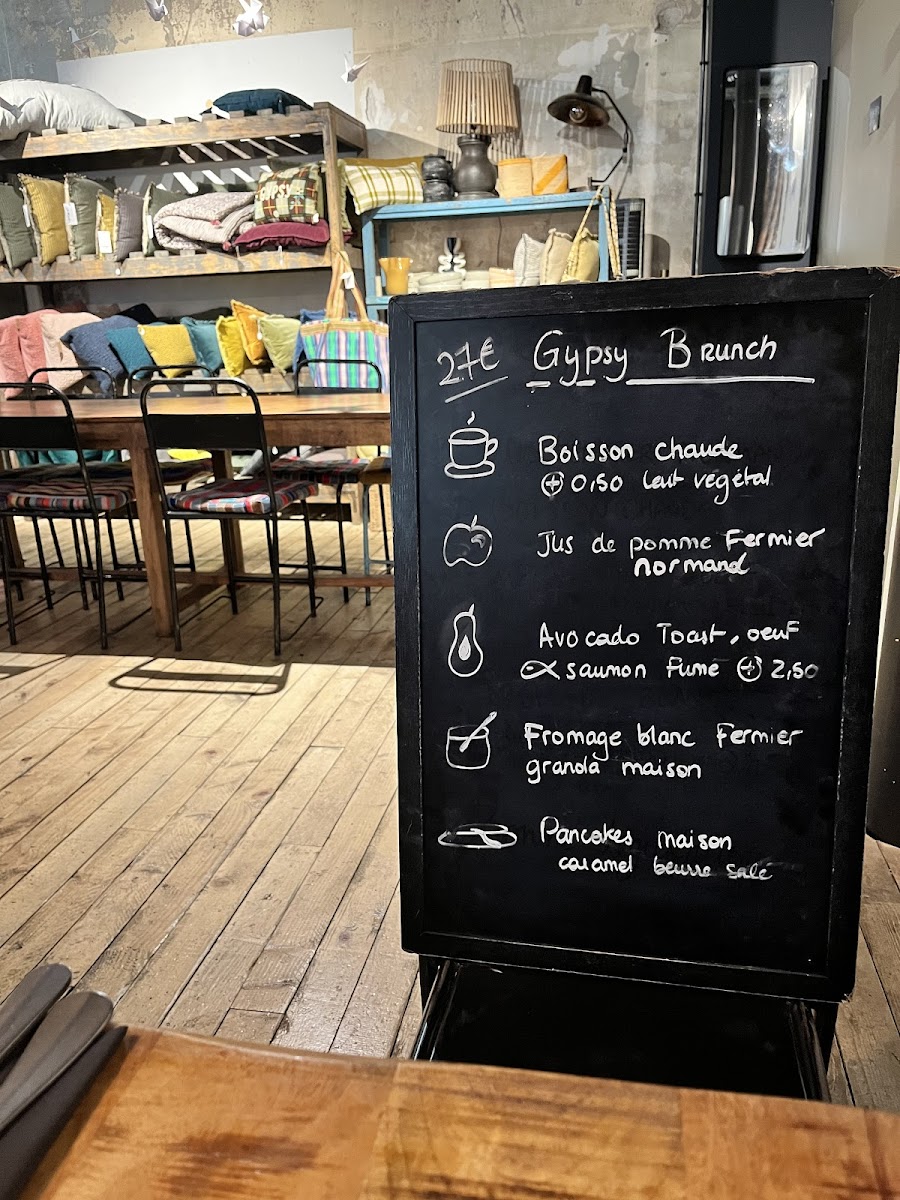 GYPSY
27€ Gypsy Brunch
Boisson chaude
⊕ 0,50 lait végétal
Jus de pomme Fermier
normand
Avocado Toast, oeuf
saumon fumé ⊕ 2,50
Fromage blanc Fermier
granola maison
Pancakes maison
caramel beurre salé